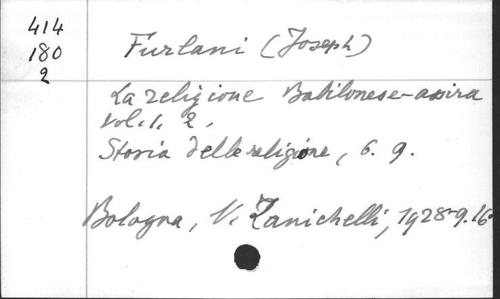 414
180
2
Furlani (Joseph)
La religione Babilonese-assira
vol. 1. 2.
Storia delle religione, 6. 9.
Bologna, N. Zanichelli, 1928-9. 16°